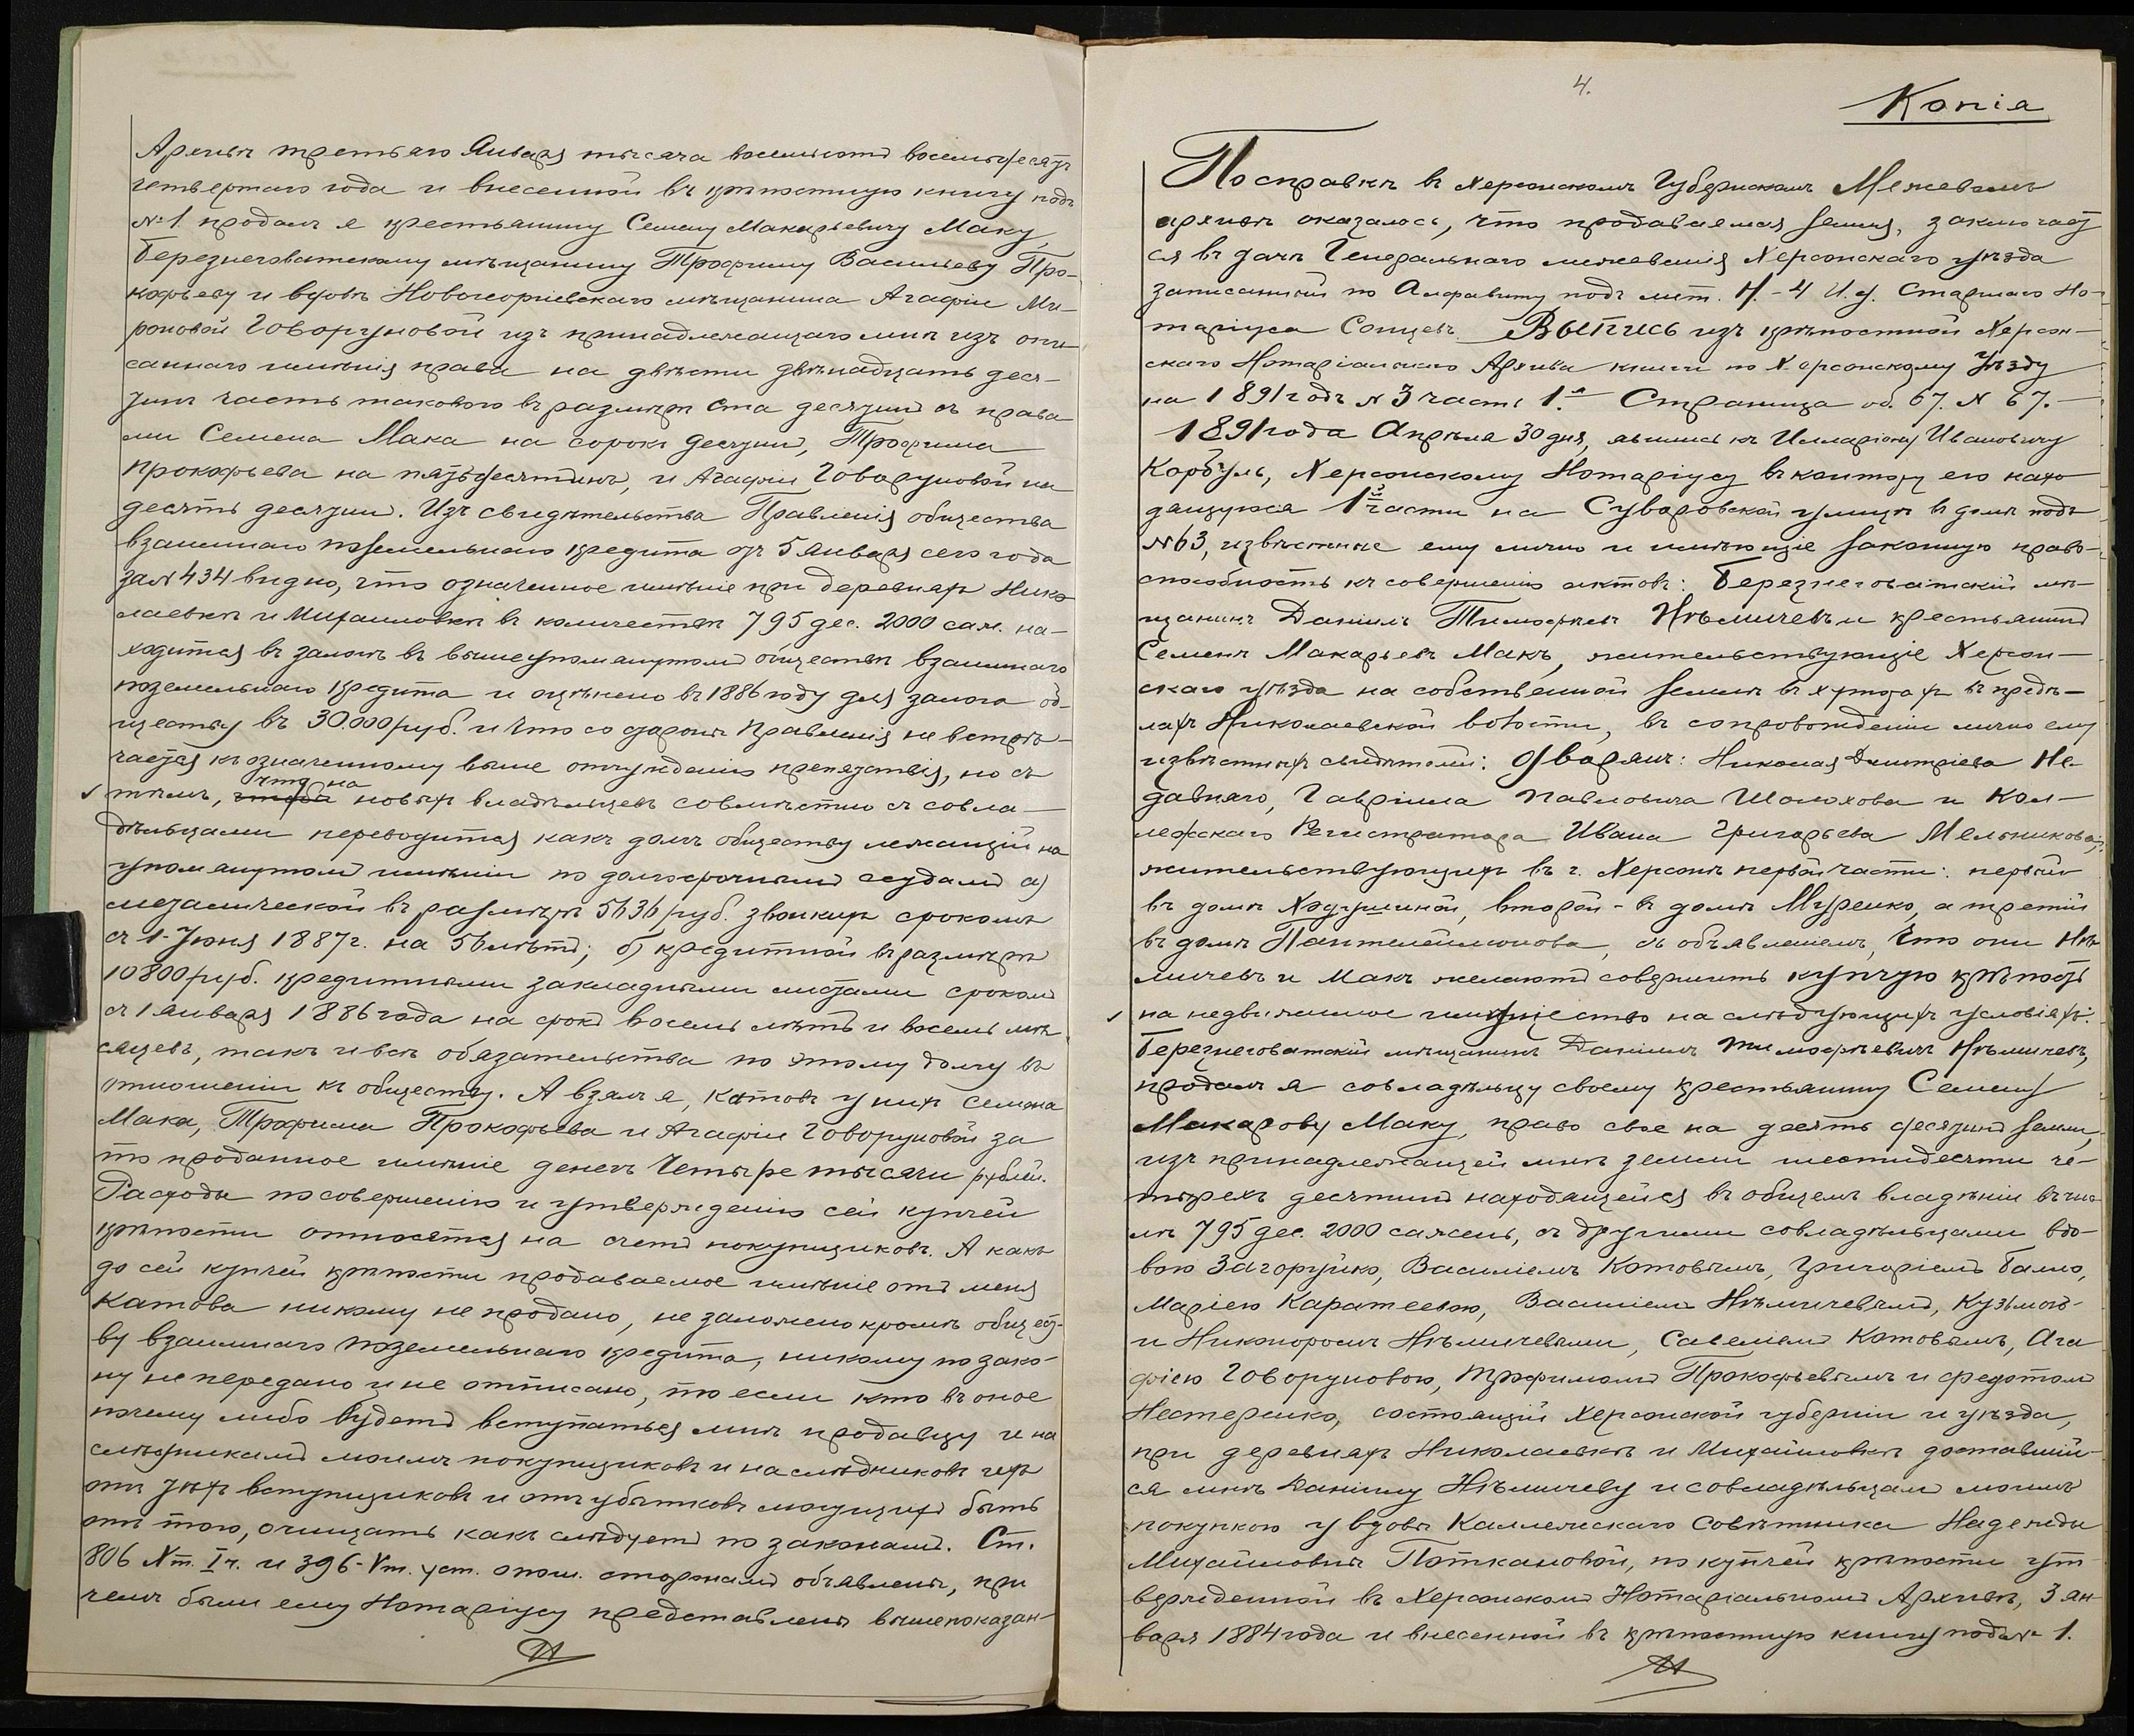 Архивѣ третьяго Января тысяча восемьсотъ восемьдесятъ
четвертаго года и внесенной въ крѣпостную книгу подъ
№ 1 продалъ я крестьянину Семену Макарьевичу Маку,
Березнеговатскому мѣщанину Трофиму Васильеву Про-
кофьеву и вдовѣ Новогеоргіевскаго мѣщанина Агафіи Ми-
роновой Говоруновой изъ принадлежащаго мнѣ изъ опи-
саннаго имѣнія права на двѣсти двѣнадцать деся-
тинъ часть таковаго въ размѣрѣ ста десятинъ съ права-
ми Семена Мака на сорокъ десятин, Трофима
Прокофьева на пятьдесятинъ, и Агафіи Говоруновой на
десять десятин. Изъ свидѣтельства Правленія общества
взаимнаго поземельнаго кредита отъ 5 Января сего года
за № 434 видно, что означенное имѣніе при деревняхъ Нико-
лаевкѣ и Михайловкѣ въ количествѣ 795 дес. 2000 саж. на-
ходится въ залогѣ въ вышеупомянутомъ обществѣ взаимнаго
поземельнаго кредита и оцѣнено въ 1886 году для залога об-
ществу въ 30.000 руб. и что со стороны Правленія не встрѣ-
чается къ означенному выше отчужденію препятствія, но съ
что на
тѣмъ, чтобы новыхъ владѣльцевъ совмѣстно съ совла-
дѣльцами переводится какъ долгъ обществу лежащій на
упомянутомъ имѣніи по долгосрочнымъ ссудамъ а)
металлической въ размѣрѣ 5636 руб. звонкихъ срокомъ
съ 1 Іюня 1887 г. на 56 лѣтъ; б) кредитной въ размѣрѣ
10800 руб. кредитными закладными листами срокомъ
съ 1 Января 1886 года на срокъ восемь лѣтъ и восемь мѣ-
сяцевъ, такъ и всѣ обязательства по этому долгу въ
отношеніи къ обществу. А взялъ я, Котовъ у нихъ Семена
Мака, Трофима Прокофьева и Агафіи Говоруновой за
то проданное имѣніе денегъ четыре тысячи рублей.
Расходы по совершенію и утвержденію сей купчей
крѣпости относятся на счетъ покупщиковъ. А какъ
до сей купчей крѣпости продаваемое имѣніе отъ меня
Катова никому не продано, не заложено кромѣ общест-
ву взаимнаго поземельнаго кредита, никому по зако-
ну не передано и не отписано, то если кто въ оное
почему либо будетъ вступаться мнѣ продавцу и на
слѣдникамъ моимъ покупщиковъ и наслѣдниковъ ихъ
отъ тѣхъ вступщиковъ и отъ убытковъ могущихъ быть
отъ того, очищать какъ слѣдуетъ по законамъ. Ст.
806 X т. I ч. и 396 - V т. уст. о пош. сторонамъ объявлены, при
чемъ были ему Нотаріусу представлены вышепоказан-
4.
Копія
По справкѣ въ Херсонскомъ Губернскомъ Межевомъ
архивѣ оказалось, что продаваемая земля, заключает
ся въ дачѣ Генеральнаго межеванія Херсонскаго уѣзда
записанной по Алфавиту подъ лит. Н. - 4 И. д. Старшаго Но-
таріуса Сонцевъ. Выпись изъ крѣпостной Херсон-
скаго Нотаріальнаго Архива книги по Херсонскому Уѣзду
на 1891 годъ № 3 часть 1.я Страница об. 67. № 67.
1891 года Апрѣля 30 дня, явились къ Илларіону Ивановичу
Корбуль, Херсонскому Нотаріусу въ контору его нахо
дящуюся 1й части на Суворовской улицѣ въ домѣ подъ
№ 63, извѣстные ему лично и имѣющіе законную право-
способность къ совершенію актовъ: Березнеговатскій мѣ-
щанинъ Даніилъ Тимофѣевъ Нѣмичевъ и крестьянинъ
Семенъ Макарьевъ Макъ, жительствующіе Херсон-
скаго уѣзда на собственной землѣ въ хуторахъ въ предѣ-
лахъ Николаевской волости, въ сопровожденіи лично ему
извѣстныхъ свидѣтелей: дворянъ: Николая Дмитріева Не-
давняго, Гавріила Павловича Шолохова и Кол-
лежскаго Регистратора Ивана Григорьева Мельникова,
жительствующихъ въ г. Херсонѣ первой части: первый
въ домѣ Ходушиной, второй - въ домѣ Муренко, а третій
въ домѣ Пантелеймонова, съ объявленіемъ, что они Нѣ-
мичевъ и Макъ желаютъ совершить купчую крѣпость
на недвижимое имущество на слѣдующихъ условіяхъ:
Березнеговатскій мѣщанинъ Даніилъ Тимофѣевичъ Нѣмичевъ,
продалъ я совладѣльцу своему крестьянину Семену
Макарову Маку, право свое на десять десятинъ земли,
изъ принадлежащей мнѣ земли шестидесяти че-
тырехъ десятинъ находящейся въ общемъ владѣніи въ чис-
лѣ 795 дес. 2000 сажень, съ другими совладѣльцами вдо-
вою Загоруйко, Василіемъ Котовымъ, Григоріемъ Балло,
Маріею Каратеевою, Василіемъ Нѣмичевымъ, Кузьмою-
и Никоноромъ Нѣмичевыми, Савеліемъ Котовымъ, Ага
фіею Говоруновою, Трофимомъ Прокофьевымъ и Федотомъ
Нестеренко, состоящій Херсонской губерніи и уѣзда,
при деревняхъ Николаевкѣ и Михайловкѣ доставшій-
ся мнѣ Даніилу Нѣмичеву и совладѣльцамъ моимъ
покупкою у вдовы Каллежскаго Совѣтника Надежды
Михайловны Поткановой, по купчей крѣпости ут-
вержденной въ Херсонскомъ Нотаріальномъ Архивѣ, 3 Ян-
варя 1884 года и внесенной въ крѣпостную книгу подъ № 1.